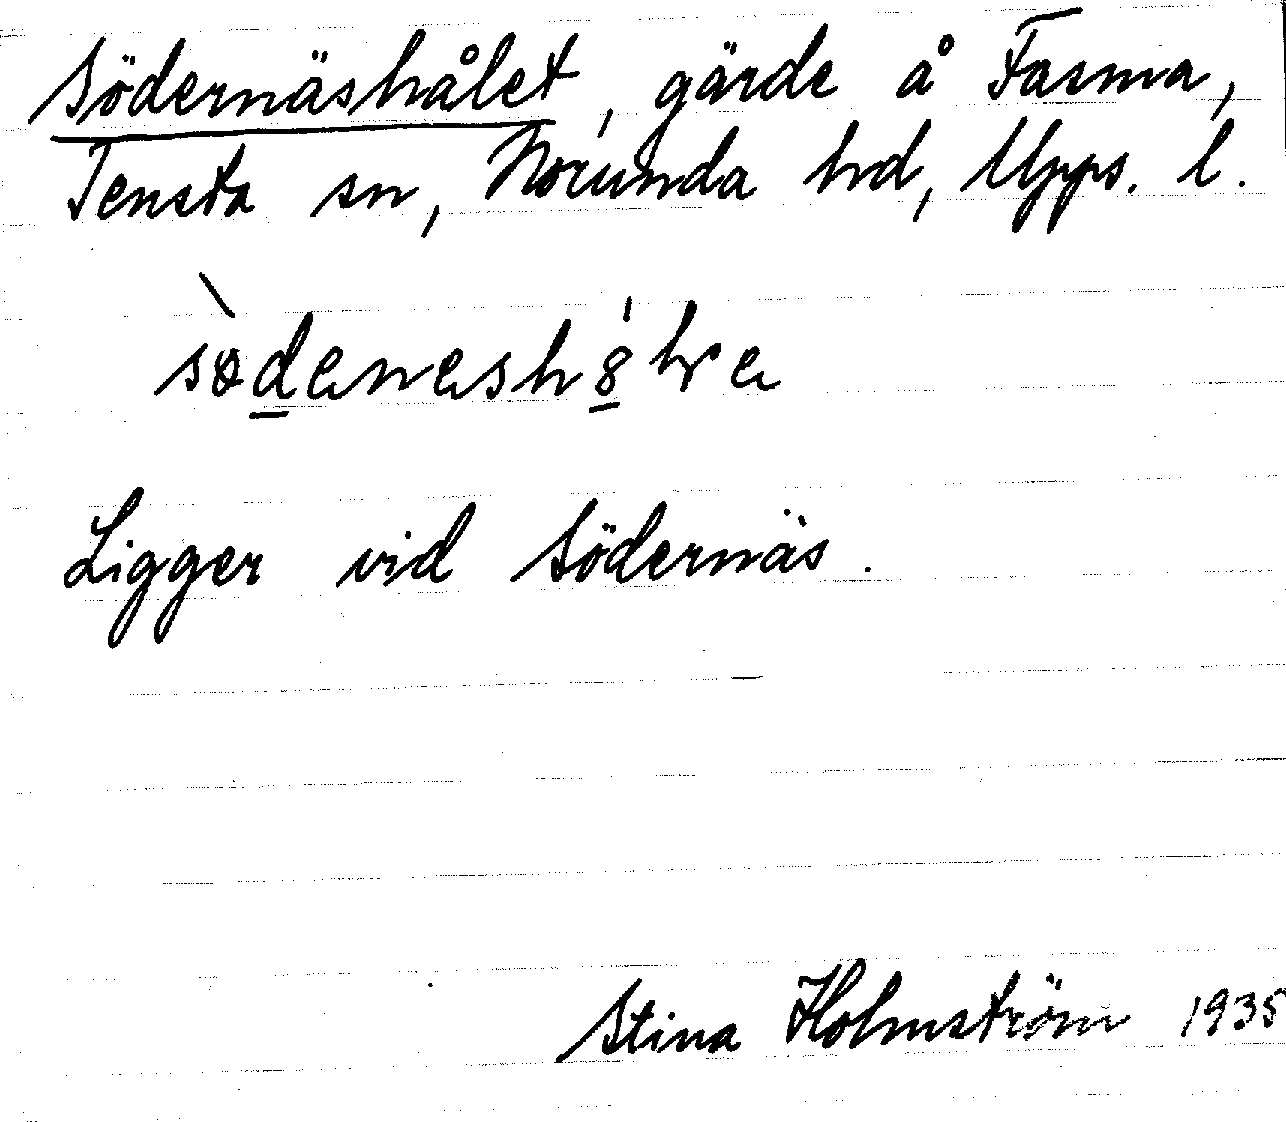 Södernäshålet, gärde å Fasma,
Tensta sn, Norunda hd, Upps. l.
Ligger vid Södernäs.
Stina Holmström 1935